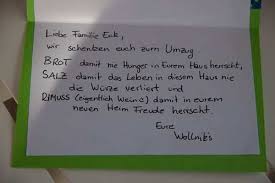 Liebe Familie Eck,
wir schenken euch zum Umzug
BROT damit nie Hunger in Eurem Haus herrscht,
SALZ damit das Leben in diesem Haus nie
die Würze verliert und
RIMUSS (eigentlich Wein) damit in eurem
neuen Heim Freude herrscht.
Eure
Wollnik's